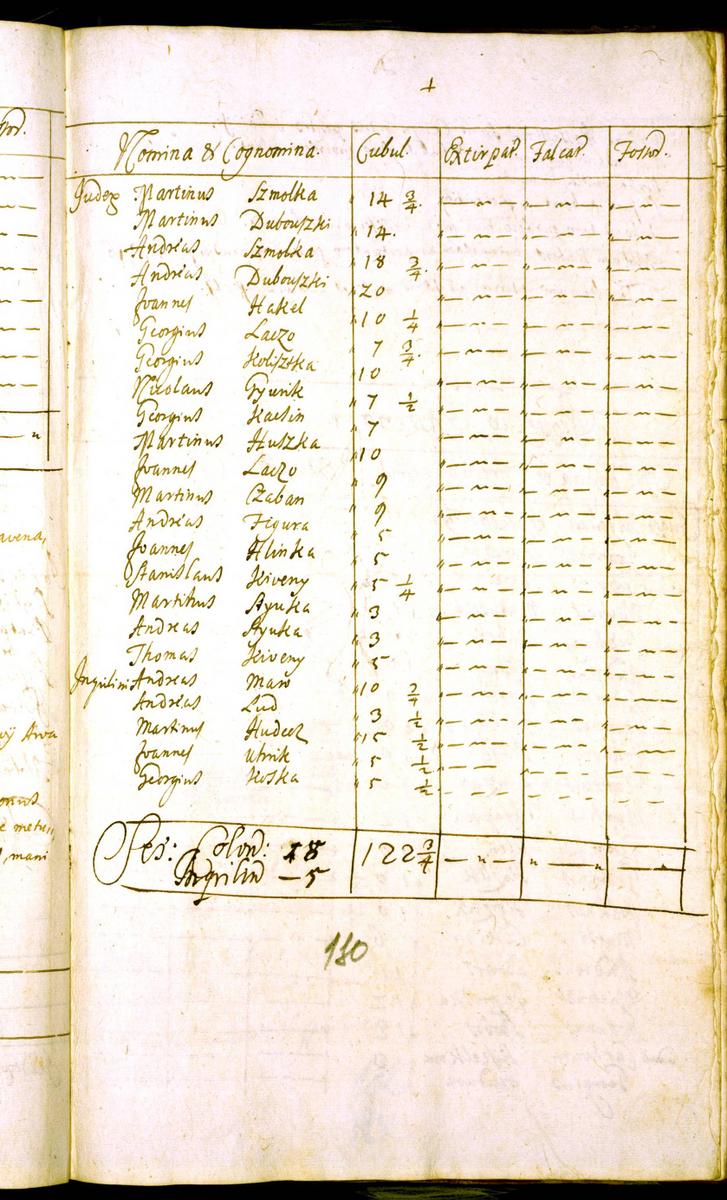 +
Nomina & Cognomina. Cubul. Extirpat. Falcat. Fossor.
Judex Martinus Szmolka 14 3/4.
Martinus Dubouszki 14.
Andreas Szmolka 18 3/4.
Andreas Dubouszki 20
Joannes Hakel 10 1/4
Georgius Laczo 7 3/4.
Georgius Koliszka 10
Nicolaus Gyurik 7 1/2
Georgius 7
Martinus Huszka 10
Joannes Laczo 9
Martinus Czaban 9
Andreas Figura 5
Joannes Hlinka 5
Stanislaus Kiveny 5 1/4
Martinus Styuka 3
Andreas Styuka 3
Thomas Kiveny 5
Inquilini Andreas 10 3/4
Andreas Lud 3 1/2
Martinus Hudecz 15 1/2
Joannes Uhrik 5 1/2
Georgius Koska 5 1/2
Colon: 18 122 3/4
Inquilin — 5
180